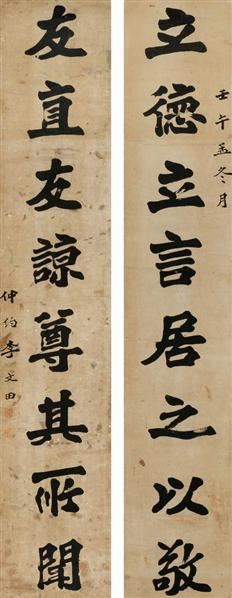 壬午孟冬月
立德立言居之以敬
友直友諒尊其所聞
仲約李文田